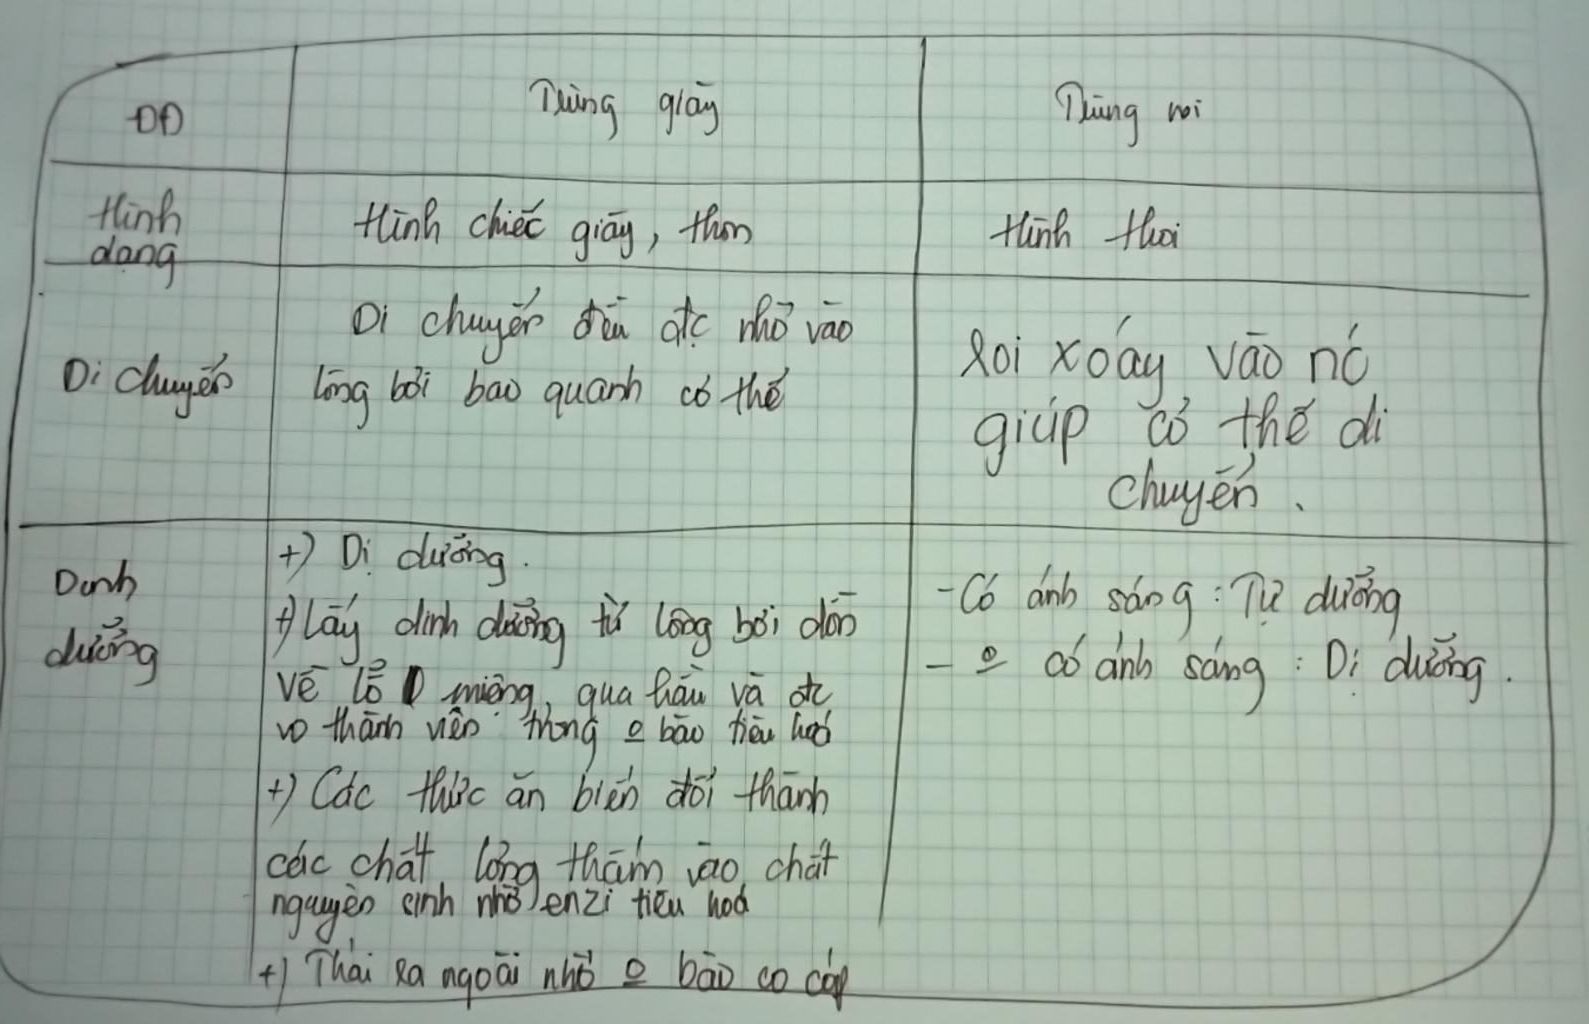 ĐĐ
Trùng giày
Trùng roi
Hình
dạng
Hình chiếc giày, thon
Hình thoi
Di chuyển
Di chuyển đều đc nhờ vào
lông bơi bao quanh cơ thể
Roi xoáy vào nó
giúp cơ thể di
chuyển.
Dinh
dưỡng
+) Dị dưỡng.
+) Lấy dinh dưỡng từ lông bơi dồn
về lỗ miệng, qua hầu và đc
vo thành viên trong o bào tiêu hoá
+) Các thức ăn biến đổi thành
các chất lỏng thấm vào chất
nguyên sinh nhờ enzi tiêu hoá
+) Thải ra ngoài nhờ o bào co cóp
- Có ánh sáng: Tự dưỡng
- o có ánh sáng: Dị dưỡng.